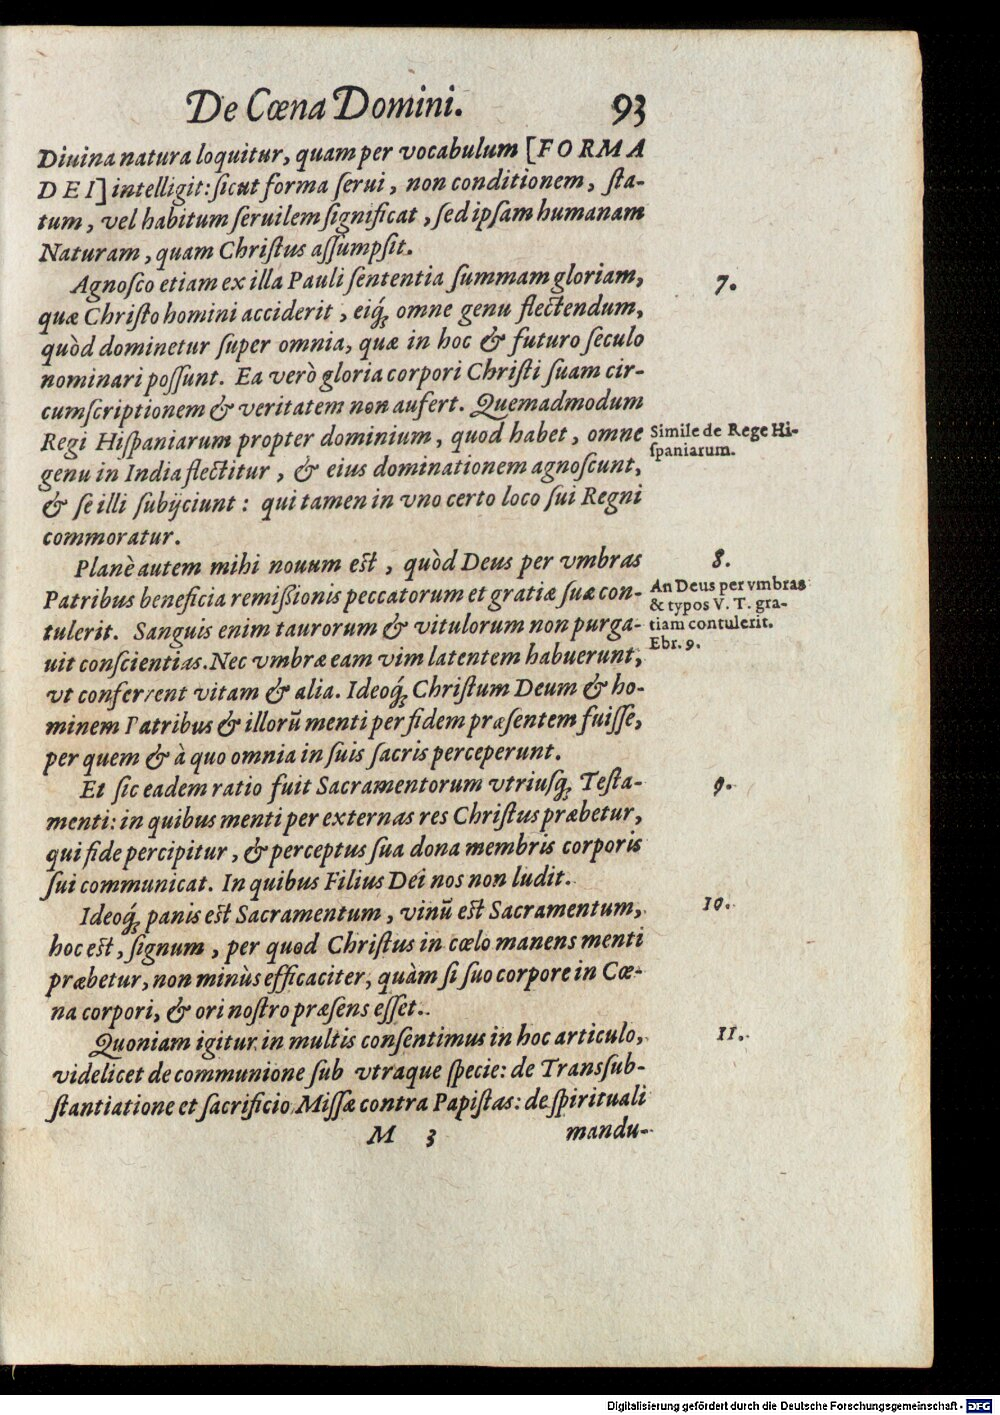 De Cœna Domini. 93
Diuina natura loquitur, quam per vocabulum [FORMA
DEI] intelligit: ſicut forma ſerui, non conditionem, ſta-
tum, vel habitum ſeruilem ſignificat, ſed ipſam humanam
Naturam, quam Chriſtus aſſumpſit.
Agnoſco etiam ex illa Pauli ſententia ſummam gloriam,
7.
quæ Chriſto homini acciderit, eiq́; omne genu flectendum,
quòd dominetur ſuper omnia, quæ in hoc & futuro ſeculo
nominari poſſunt. Ea verò gloria corpori Chriſti ſuam cir-
cumſcriptionem & veritatem non aufert. Quemadmodum
Regi Hiſpaniarum propter dominium, quod habet, omne
Simile de Rege Hi-
ſpaniarum.
genu in India flectitur, & eius dominationem agnoſcunt,
& ſe illi ſubijciunt: qui tamen in vno certo loco ſui Regni
commoratur.
Planè autem mihi nouum eſt, quòd Deus per vmbras
8.
Patribus beneficia remißionis peccatorum et gratiæ ſuæ con-
An Deus per vmbras
& typos V. T. gra-
tiam contulerit.
Ebr. 9.
tulerit. Sanguis enim taurorum & vitulorum non purga-
uit conſcientias. Nec vmbræ eam vim latentem habuerunt,
vt conferrent vitam & alia. Ideoq́; Chriſtum Deum & ho-
minem Patribus & illorũ menti per fidem præſentem fuiſſe,
per quem & à quo omnia in ſuis ſacris perceperunt.
Et ſic eadem ratio fuit Sacramentorum vtriuſq; Teſta-
9.
menti: in quibus menti per externas res Chriſtus præbetur,
qui fide percipitur, & perceptus ſua dona membris corporis
ſui communicat. In quibus Filius Dei nos non ludit.
Ideoq́; panis eſt Sacramentum, vinũ eſt Sacramentum,
10.
hoc eſt, ſignum, per quod Chriſtus in cœlo manens menti
præbetur, non minùs efficaciter, quàm ſi ſuo corpore in Cœ-
na corpori, & ori noſtro præſens eſſet.
Quoniam igitur in multis conſentimus in hoc articulo,
11.
videlicet de communione ſub vtraque ſpecie: de Transſub-
ſtantiatione et ſacrificio Miſſæ contra Papiſtas: de ſpirituali
M 3 mandu-
Digitalisierung gefördert durch die Deutsche Forschungsgemeinschaft - DFG